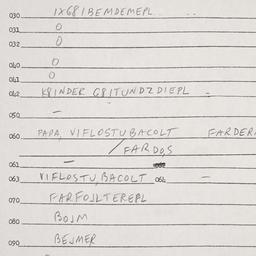 030 IX681BEMDEMEPL
031 0
032 0
040 0
041 0
042 K8INDER G8ITUNDZDIEPL
050 –
060 PAPA, VIFLOSTUBACOLT FARDER
/FARDOS
061 –
063 VIFLOSTU, BACOLT 064 –
070 FARFOJLTEREPL
080 BOJM
090 BEJMER